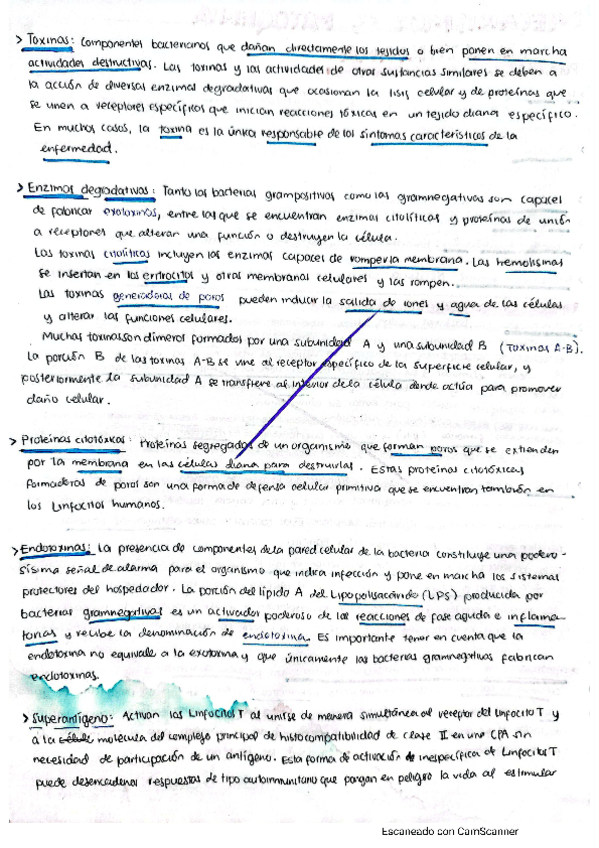 > Toxinas: Componentes bacterianos que dañan directamente los tejidos o bien ponen en marcha
actividades destructivas. Las toxinas y las actividades de otras sustancias similares se deben a
la acción de diversas enzimas degradativas que ocasionan la lisis celular y de proteínas que
se unen a receptores específicos que inician reacciones tóxicas en un tejido diana específico.
En muchos casos, la toxina es la única responsable de los síntomas característicos de la
enfermedad.
> Enzimas degradativas: Tanto las bacterias grampositivas como las gramnegativas son capaces
de fabricar exotoxinas, entre las que se encuentran enzimas citolíticas y proteínas de unión
a receptores que alteran una función o destruyen la célula.
Las toxinas citolíticas incluyen las enzimas capaces de romper la membrana. Las hemolisinas
se insertan en los eritrocitos y otras membranas celulares y las rompen.
Las toxinas generadoras de poros pueden inducir la salida de iones y agua de las células
y alterar las funciones celulares.
Muchas toxinas son dímeros formados por una subunidad A y una subunidad B (Toxinas A-B).
La porción B de las toxinas A-B se une al receptor específico de la superficie celular, y
posteriormente la subunidad A se transfiere al interior de la célula donde actúa para promover
daño celular.
> Proteínas citotóxicas: Proteínas segregadas de un organismo que forman poros que se extienden
por la membrana en las células diana para destruirlas. Estas proteínas citotóxicas
formadoras de poros son una forma de defensa celular primitiva que se encuentran también en
los linfocitos humanos.
> Endotoxinas: La presencia de componentes de la pared celular de la bacteria constituye una podero-
sísima señal de alarma para el organismo que indica infección y pone en marcha los sistemas
protectores del hospedador. La porción del lípido A del Lipopolisacárido (LPS) producida por
bacterias gramnegativas es un activador poderoso de las reacciones de fase aguda e inflama-
torias y recibe la denominación de endotoxina. Es importante tener en cuenta que la
endotoxina no equivale a la exotoxina y que únicamente las bacterias gramnegativas fabrican
endotoxinas.
> Superantígeno: Activan las Linfocitos T al unirse de manera simultánea al receptor del linfocito T y
a la molécula del complejo principal de histocompatibilidad de clase II en una CPA sin
necesidad de participación de un antígeno. Esta forma de activación inespecífica de Linfocitos T
puede desencadenar respuestas de tipo autoinmunitario que pongan en peligro la vida al estimular
Escaneado con CamScanner